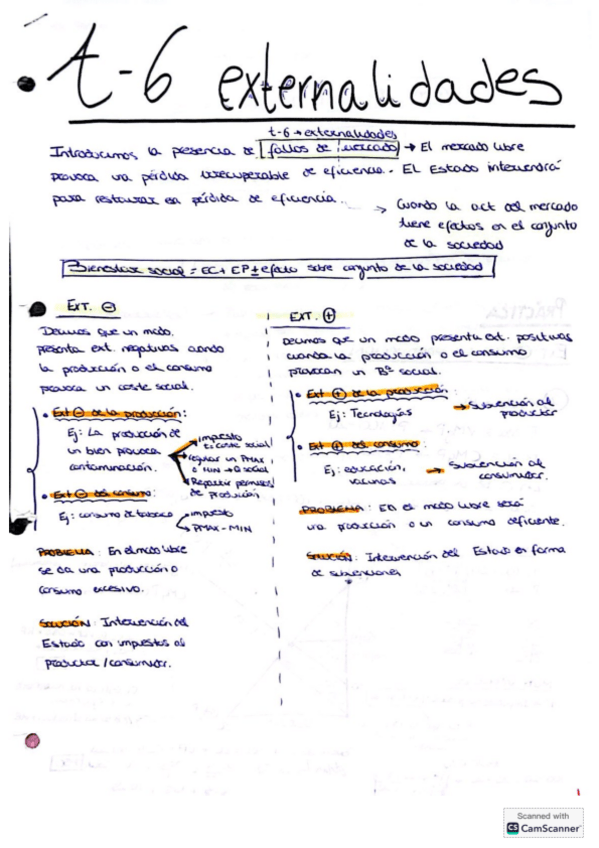 t-6 externalidades
t-6 → externalidades
Introducimos la presencia de fallos de mercado → El mercado libre
provoca una pérdida irrecuperable de eficiencia. El Estado intervendrá
para restaurar esa pérdida de eficiencia.
→ Cuando la act del mercado
tiene efectos en el conjunto
de la sociedad
Bienestar social = EC + EP ± efecto sobre conjunto de la sociedad
EXT. ⊖
Decimos que un mcdo.
presenta ext. negativas cuando
la producción o el consumo
provoca un coste social.
• Ext ⊖ de la producción:
Ej: La producción de
un bien provoca
contaminación.
→ impuesto
t = coste social
→ regular un PMAX
o MIN → Q social
→ Repartir permisos
de producción
• Ext ⊖ del consumo:
Ej: consumo de tabaco
→ impuesto
→ PMAX-MIN
PROBLEMA: En el mcdo libre
se da una producción o
consumo excesivo.
SOLUCIÓN: Intervención del
Estado con impuestos al
productor/consumidor.
EXT. ⊕
Decimos que un mcdo presenta ext. positivas
cuando la producción o el consumo
provocan un Bº social.
• Ext ⊕ de la producción:
Ej: Tecnologías
→ Subvención al
productor
• Ext ⊕ del consumo:
Ej: educación,
vacunas
→ Subvención al
consumidor.
PROBLEMA: En el mcdo libre será
una producción o un consumo deficiente.
SOLUCIÓN: Intervención del Estado en forma
de subvenciones
1
Scanned with
CS CamScanner